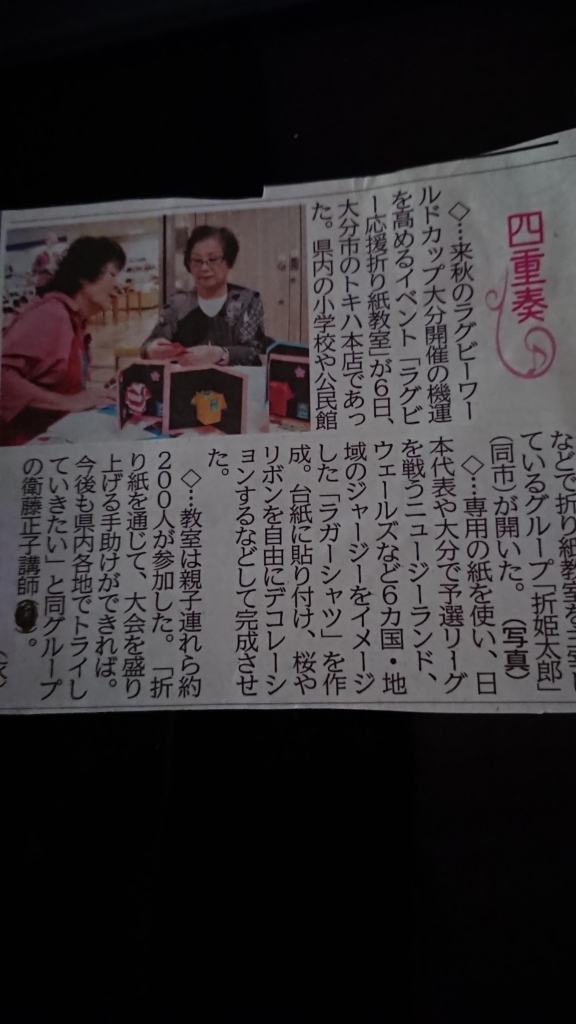 四重奏
◇…来秋のラグビーワー
ルドカップ大分開催の機運
を高めるイベント「ラグビ
ー応援折り紙教室」が6日、
大分市のトキハ本店であっ
た。県内の小学校や公民館
などで折り紙教室を
ているグループ「折姫太郎」
(同市)が開いた。(写真)
◇…専用の紙を使い、日
本代表や大分で予選リーグ
を戦うニュージーランド、
ウェールズなど6カ国・地
域のジャージーをイメージ
した「ラガーシャツ」を作
成。台紙に貼り付け、桜や
リボンを自由にデコレーシ
ョンするなどして完成させ
た。
◇…教室は親子連れら約
200人が参加した。「折
り紙を通じて、大会を盛り
上げる手助けができれば。
今後も県内各地でトライし
ていきたい」と同グループ
の衛藤正子講師
。